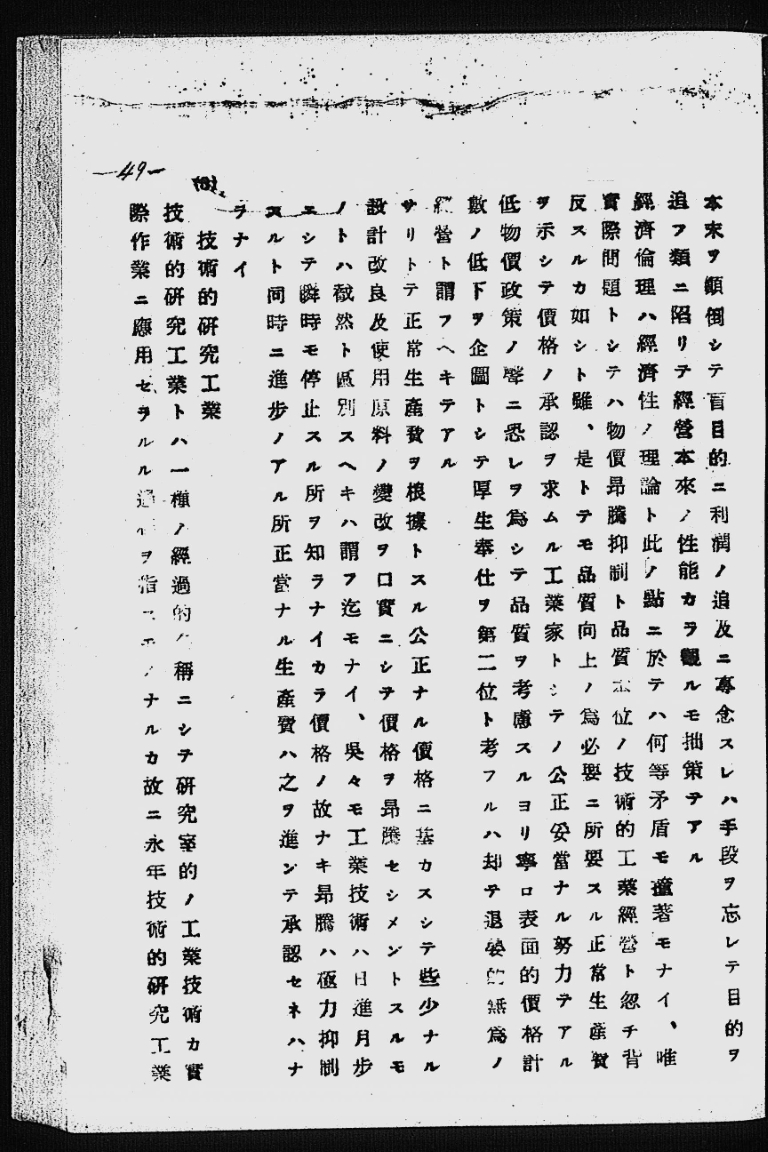 本末ヲ顚倒シテ盲目的ニ利潤ノ追及ニ專念スレハ手段ヲ忘レテ目的ヲ
追フ類ニ陷リテ經營本來ノ性能カラ觀ルモ拙策テアル
經濟倫理ハ經濟性ノ理論ト此ノ點ニ於テハ何等矛盾モ撞著モナイ、唯
實際問題トシテハ物價昂騰抑制ト品質本位ノ技術的工業經營ト忽チ背
反スルカ如シト雖、是トテモ品質向上ノ爲必要ニ所要スル正常生產費
ヲ示シテ價格ノ承認ヲ求ムル工業家トシテノ公正妥當ナル努力テアル
低物價政策ノ聲ニ恐レヲ爲シテ品質ヲ考慮スルヨリ寧ロ表面的價格計
數ノ低下ヲ企圖トシテ厚生奉仕ヲ第二位ト考フルハ却テ退嬰的無爲ノ
經營ト謂フヘキテアル
サリトテ正常生產費ヲ根據トスル公正ナル價格ニ基カスシテ些少ナル
設計改良及使用原料ノ變改ヲ口實ニシテ價格ヲ昂騰セシメントスルモ
ノトハ截然ト區別スヘキハ謂フ迄モナイ、吳々モ工業技術ハ日進月步
ニシテ瞬時モ停止スル所ヲ知ラナイカラ價格ノ故ナキ昂騰ハ極力抑制
スルト同時ニ進步ノアル所正當ナル生產費ハ之ヲ進ンテ承認セネハナ
ラナイ
(6) 技術的硏究工業
技術的硏究工業トハ一種ノ經過的名稱ニシテ硏究室的ノ工業技術カ實
際作業ニ應用セラルル過程ヲ指スモノナルカ故ニ永年技術的硏究工業
—49—